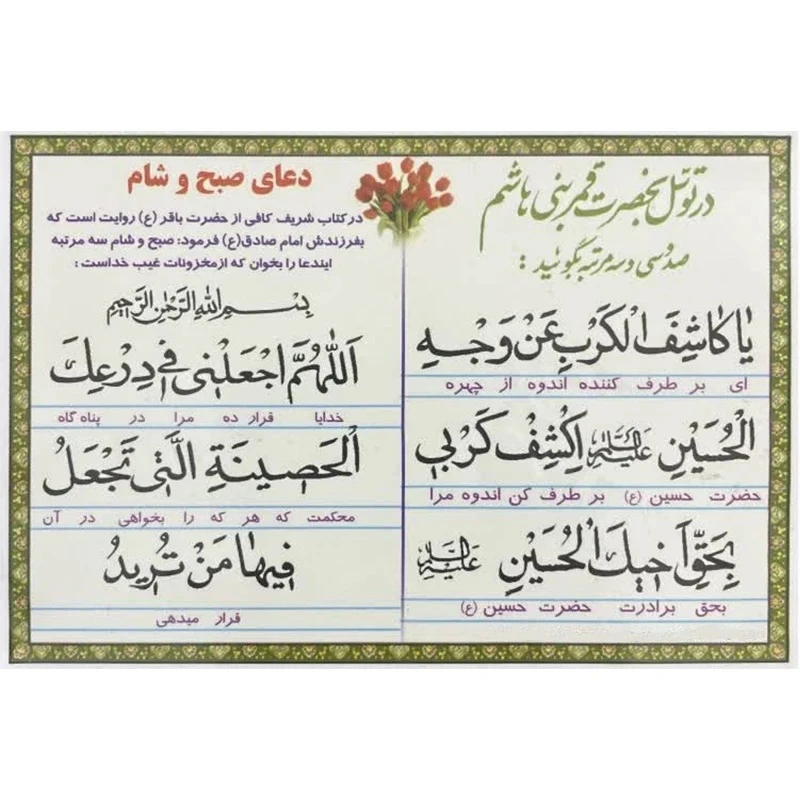 در توسل بحضرت قمر بنی هاشم
صد و سی و سه مرتبه بگوئید :
یا کاشِفَ الْکَرْبِ عَنْ وَجْهِ
ای بر طرف کننده اندوه از چهره
الْحُسَیْنِ عَلَیْهِ السَّلام اِکْشِفْ کَرْبی
حضرت حسین (ع) بر طرف کن اندوه مرا
بِحَقِّ اَخیكَ الْحُسَیْنِ عَلَیْهِ السَّلام
بحق برادرت حضرت حسین (ع)
دعای صبح و شام
در کتاب شریف کافی از حضرت باقر (ع) روایت است که
بفرزندش امام صادق(ع) فرمود: صبح و شام سه مرتبه
ایندعا را بخوان که از مخزونات غیب خداست :
بِسْمِ اللهِ الرَّحْمٰنِ الرَّحیمِ
اَللّٰهُمَّ اجْعَلْنی فی دِرْعِكَ
خدایا قرار ده مرا در پناه گاه
الْحَصینَةِ الَّتی تَجْعَلُ
محکمت که هر که را بخواهی در آن
فیها مَنْ تُریدُ
قرار میدهی